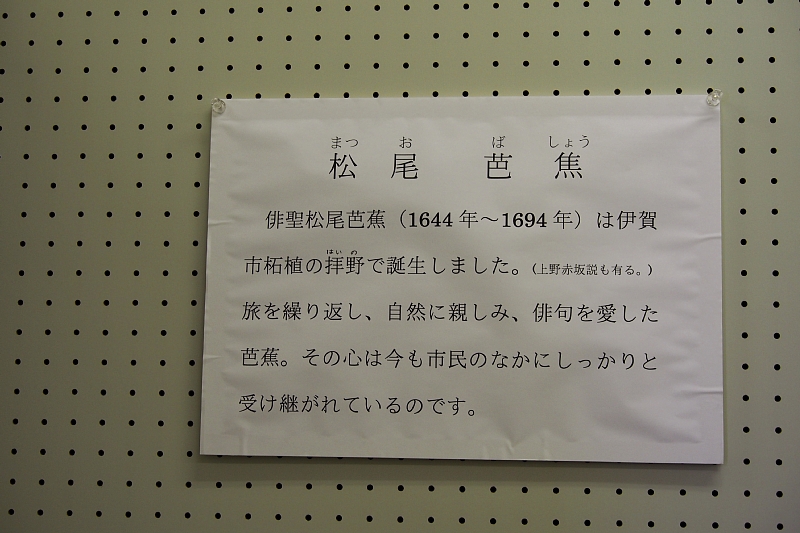 まつ お ば しょう
松 尾 芭 焦
俳聖松尾芭蕉（1644 年～1694 年）は伊賀
はい の
市柘植の拝野で誕生しました。（上野赤坂説も有る。）
旅を繰り返し、自然に親しみ、俳句を愛した
芭蕉。その心は今も市民のなかにしっかりと
受け継がれているのです。